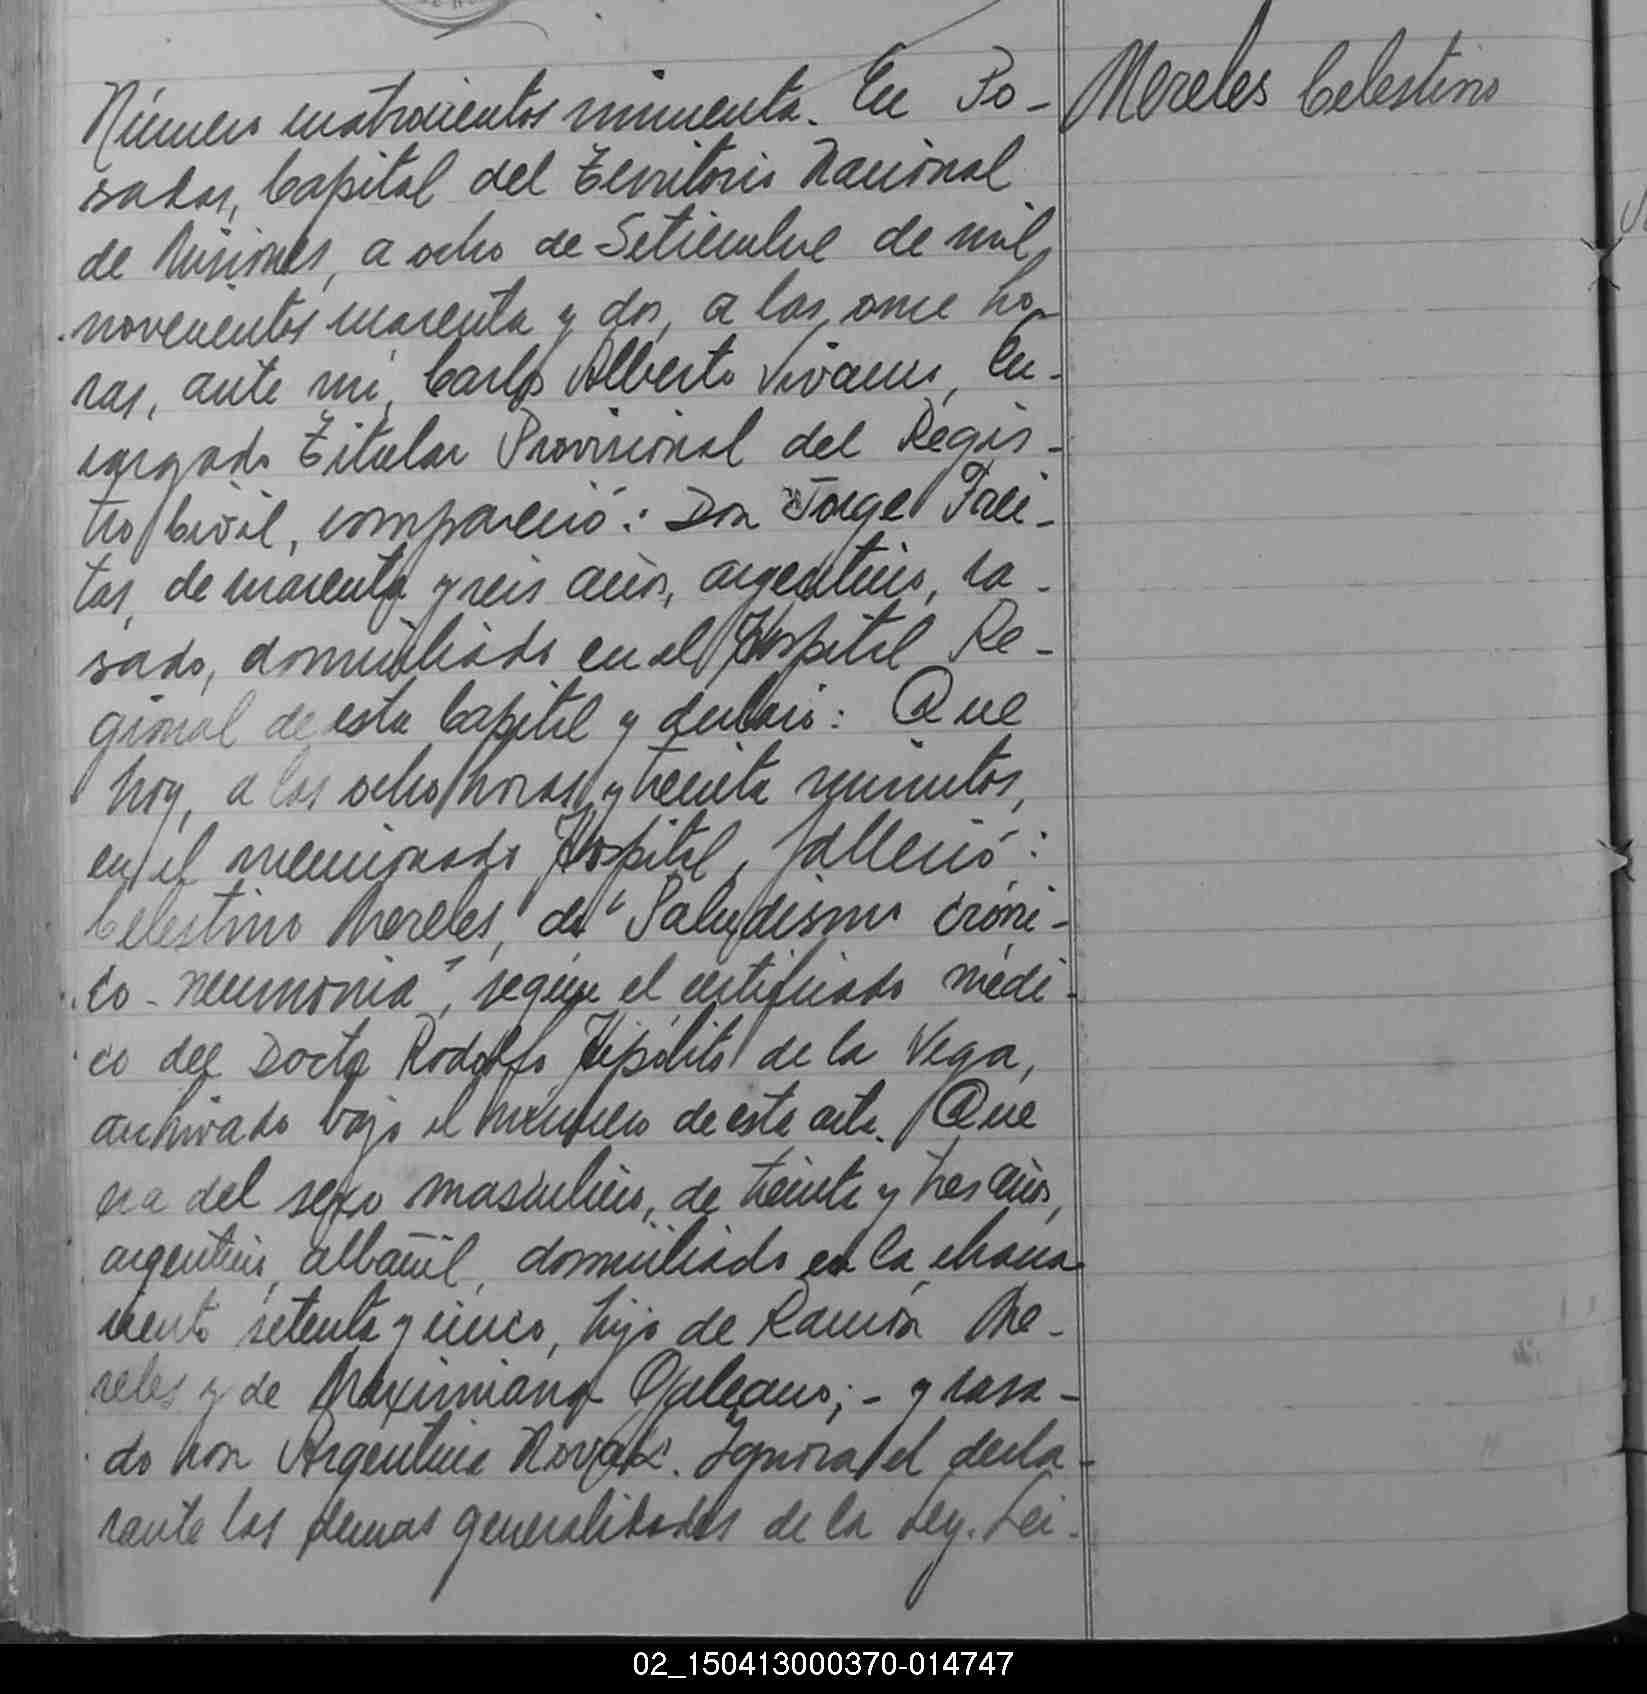 Mereles Celestino
Número cuatrocientos cincuenta. En Po-
sadas, Capital del Territorio Nacional
de Misiones, a ocho de Setiembre de mil
novecientos cuarenta y dos, a las once ho-
ras, ante mí, Carlos Alberto Vivanco, En-
cargado Titular Provisional del Regis-
tro Civil, compareció: Don Jorge Frei-
tas, de cuarenta y seis años, argentino, ca-
sado, domiciliado en el Hospital Re-
gional de esta Capital y declaró: Que
hoy, a las ocho horas y treinta minutos,
en el mencionado Hospital, falleció:
Celestino Mereles, de "Paludismo cróni-
co - neumonia", según el certificado médi-
co del Doctor Rodolfo Hipólito de la Vega,
archivado bajo el número de esta acta. Que
era del sexo masculino, de treinta y tres años,
argentino, albañil, domiciliado en la chacra
ciento setenta y cinco, hijo de Ramón Me-
reles y de Maximiana ; - y casa-
do con Argentina. Ignora el decla-
rante las demas generalidades de la Ley. Lei-
02_150413000370-014747